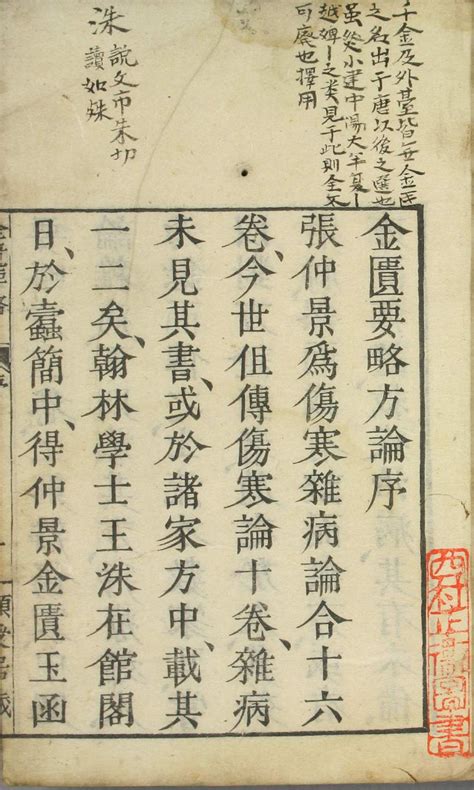 千金及外臺皆無金匱
之名出于唐以後之匯也
虽從小建中湯大半夏ー
越婢ー之类見于此則全不
可廢也擇用
洙
説文市朱切
讀如殊
金匱要略方論序
張仲景爲傷寒雜病論合十六
卷、今世但傳傷寒論十卷、雜病
未見其書、或於諸家方中、載其
一二矣、翰林學士王洙在館閣
日、於蠹簡中、得仲景金匱玉函